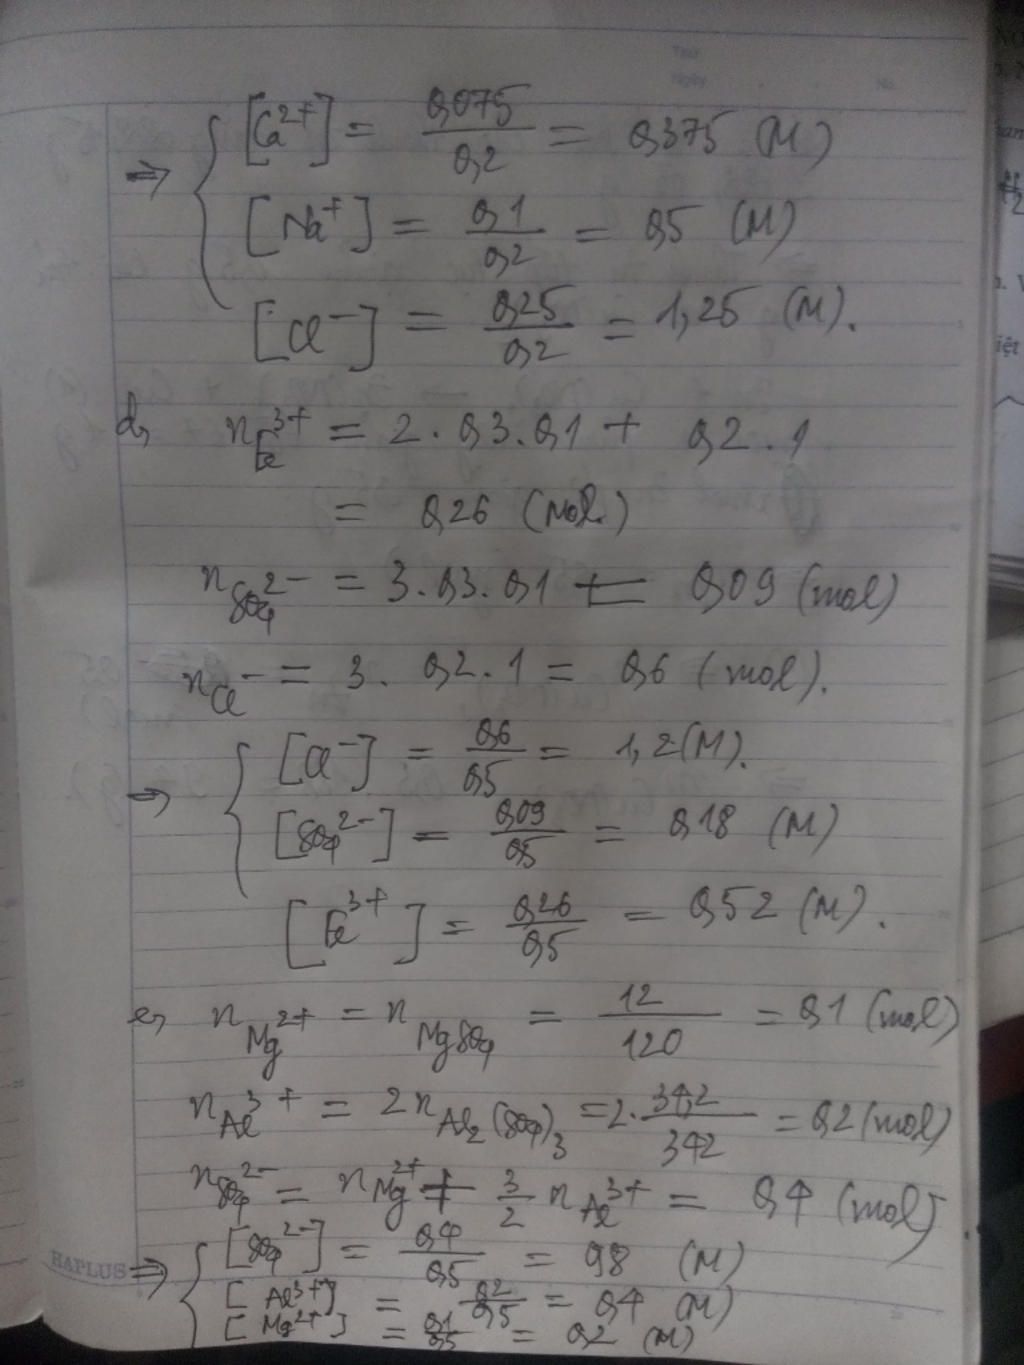 Thứ
Ngày No.
⇒ { [Ca²⁺] = 0,075/0,2 = 0,375 (M)
[Na⁺] = 0,1/0,2 = 0,5 (M)
[Cl⁻] = 0,25/0,2 = 1,25 (M).
d, n Fe³⁺ = 2 . 0,3 . 0,1 + 0,2 . 1
= 0,26 (mol)
n SO₄²⁻ = 3 . 0,3 . 0,1 = 0,09 (mol)
n Cl⁻ = 3 . 0,2 . 1 = 0,6 (mol).
⇒ { [Cl⁻] = 0,6/0,5 = 1,2 (M).
[SO₄²⁻] = 0,09/0,5 = 0,18 (M)
[Fe³⁺] = 0,26/0,5 = 0,52 (M).
e, n Mg²⁺ = n MgSO₄ = 12/120 = 0,1 (mol)
n Al³⁺ = 2n Al₂(SO₄)₃ = 2 . 34,2/342 = 0,2 (mol)
n SO₄²⁻ = n Mg²⁺ + 3/2 n Al³⁺ = 0,4 (mol)
HAPLUS
⇒ { [SO₄²⁻] = 0,4/0,5 = 0,8 (M)
[Al³⁺] = 0,2/0,5 = 0,4 (M)
[Mg²⁺] = 0,1/0,5 = 0,2 (M)